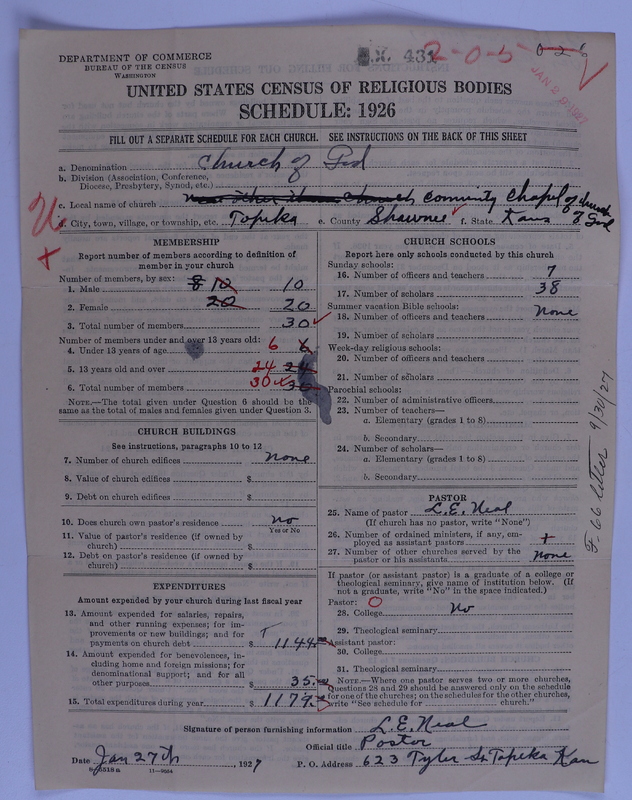 DEPARTMENT OF COMMERCE
BUREAU OF THE CENSUS
WASHINGTON
431 2-0-5- 026
JAN 29 1927
UNITED STATES CENSUS OF RELIGIOUS BODIES
SCHEDULE: 1926
FILL OUT A SEPARATE SCHEDULE FOR EACH CHURCH. SEE INSTRUCTIONS ON THE BACK OF THIS SHEET
a. Denomination Church of God
b. Division (Association, Conference, Diocese, Presbytery, Synod, etc.)
c. Local name of church Comunity Chapel of Church of God
d. City, town, village, or township, etc. Topeka e. County Shawnee f. State Kans
MEMBERSHIP
Report number of members according to definition of member in your church
Number of members, by sex:
1. Male 8 10 10
2. Female 20 20
3. Total number of members 30
Number of members under and over 13 years old:
4. Under 13 years of age 6 6
5. 13 years old and over 24 24
6. Total number of members 30 30
NOTE.—The total given under Question 6 should be the same as the total of males and females given under Question 3.
CHURCH BUILDINGS
See instructions, paragraphs 10 to 12
7. Number of church edifices None
8. Value of church edifices $
9. Debt on church edifices $
10. Does church own pastor's residence No
Yes or No
11. Value of pastor's residence (if owned by church) $
12. Debt on pastor's residence (if owned by church) $
EXPENDITURES
Amount expended by your church during last fiscal year
13. Amount expended for salaries, repairs, and other running expenses; for improvements or new buildings; and for payments on church debt $ 1144
14. Amount expended for benevolences, including home and foreign missions; for denominational support; and for all other purposes $ 35
15. Total expenditures during year $ 1179
CHURCH SCHOOLS
Report here only schools conducted by this church
Sunday schools:
16. Number of officers and teachers 7
17. Number of scholars 38
Summer vacation Bible schools:
18. Number of officers and teachers None
19. Number of scholars
Week-day religious schools:
20. Number of officers and teachers
21. Number of scholars
Parochial schools:
22. Number of administrative officers
23. Number of teachers—
a. Elementary (grades 1 to 8)
b. Secondary
24. Number of scholars—
a. Elementary (grades 1 to 8)
b. Secondary
PASTOR
25. Name of pastor L. E. Neal
(If church has no pastor, write "None")
26. Number of ordained ministers, if any, employed as assistant pastors
27. Number of other churches served by the pastor or his assistants None
If pastor (or assistant pastor) is a graduate of a college or theological seminary, give name of institution below. (If not a graduate, write "No" in the space indicated.)
Pastor:
28. College No
29. Theological seminary
Assistant pastor:
30. College
31. Theological seminary
NOTE.—Where one pastor serves two or more churches, Questions 28 and 29 should be answered only on the schedule for one of the churches; on the schedules for the other churches, write "See schedule for church."
F. 66 letter 9/30/27
Signature of person furnishing information L. E. Neal
Official title Pastor
Date Jan 27th, 1927 P. O. Address 623 Tyler St Topeka Kan
11—9654